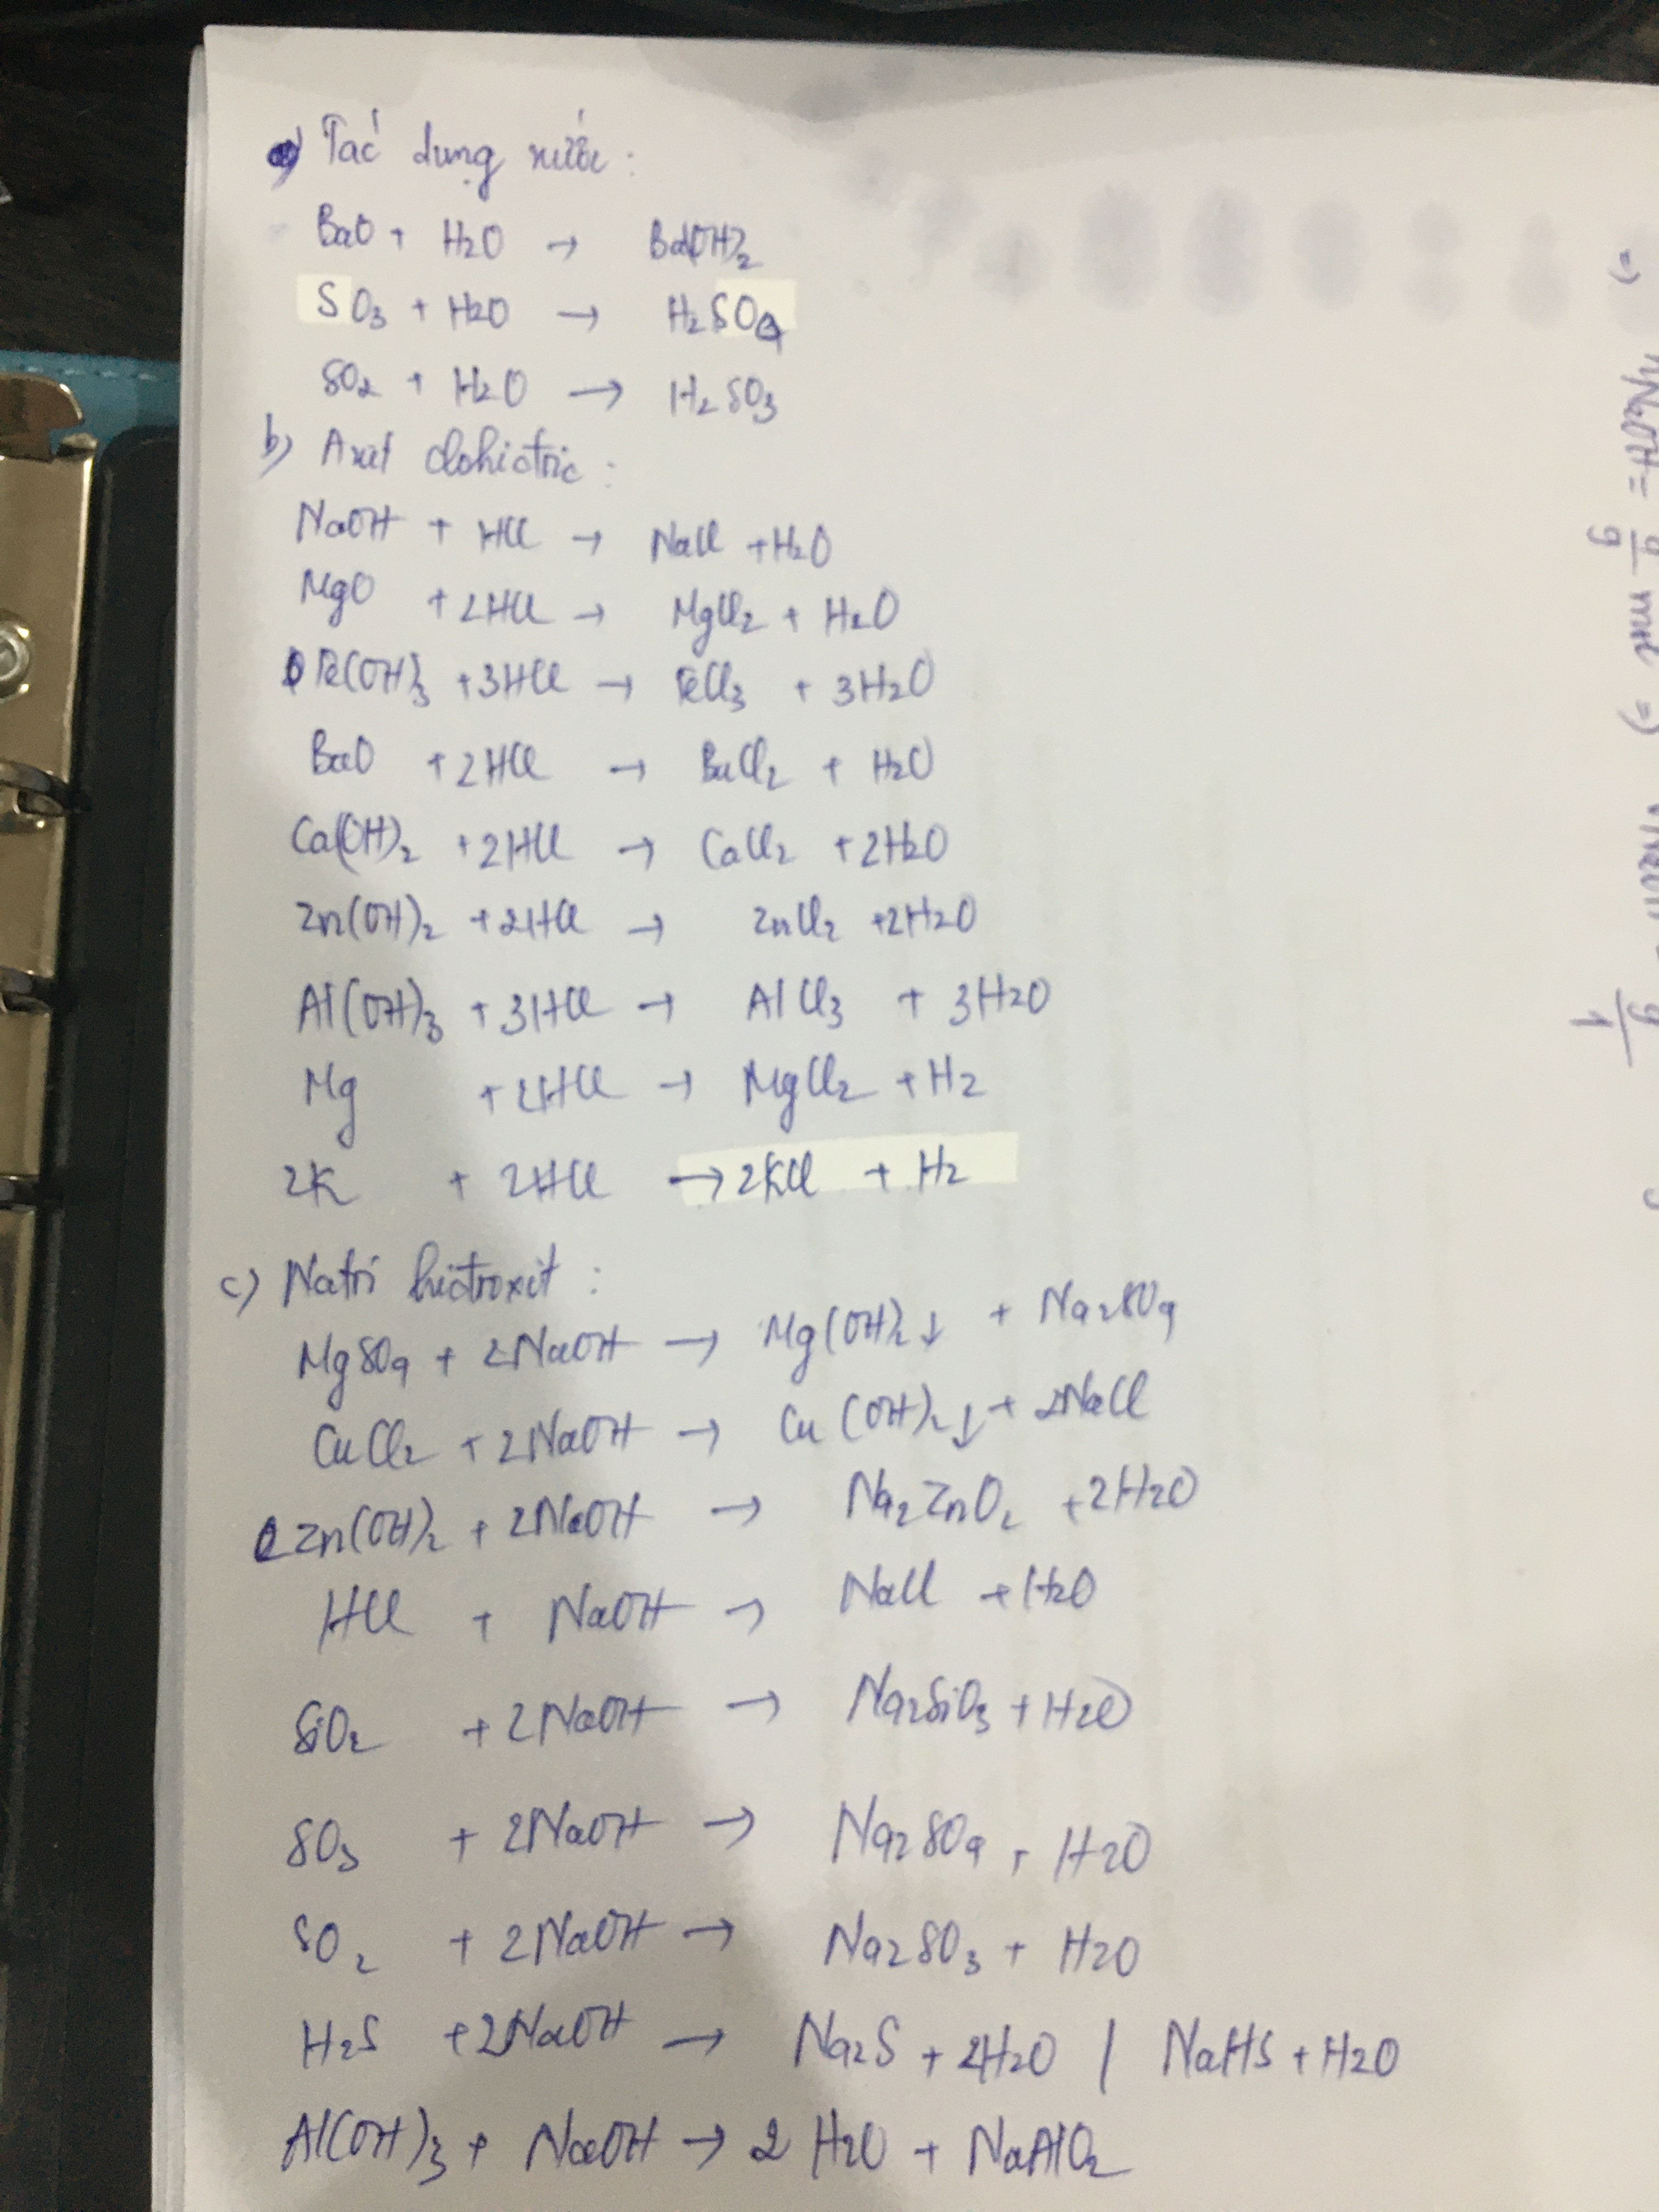 a) Tác dụng nước:
BaO + H2O → Ba(OH)2
SO3 + H2O → H2SO4
SO2 + H2O → H2SO3
b) Axit clohiđric:
NaOH + HCl → NaCl + H2O
MgO + 2HCl → MgCl2 + H2O
Fe(OH)3 + 3HCl → FeCl3 + 3H2O
BaO + 2HCl → BaCl2 + H2O
Ca(OH)2 + 2HCl → CaCl2 + 2H2O
Zn(OH)2 + 2HCl → ZnCl2 + 2H2O
Al(OH)3 + 3HCl → AlCl3 + 3H2O
Mg + 2HCl → MgCl2 + H2
2K + 2HCl → 2KCl + H2
c) Natri hiđroxit:
MgSO4 + 2NaOH → Mg(OH)2↓ + Na2SO4
CuCl2 + 2NaOH → Cu(OH)2↓ + 2NaCl
Zn(OH)2 + 2NaOH → Na2ZnO2 + 2H2O
HCl + NaOH → NaCl + H2O
SiO2 + 2NaOH → Na2SiO3 + H2O
SO3 + 2NaOH → Na2SO4 + H2O
SO2 + 2NaOH → Na2SO3 + H2O
H2S + 2NaOH → Na2S + 2H2O / NaHS + H2O
Al(OH)3 + NaOH → 2H2O + NaAlO2